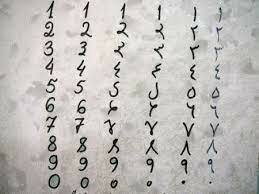 1 1 1 1 ١ ١
2 2 2 ٢ ٢
3 3 3 ٣ ٣
4 4 ٤ ٤ ٤
5 5 5 ٥ ٥
6 6 6 ٦ ٦
7 7 7 ٧ ٧
8 8 8 ٨ ٨
9 9 9 9 ٩ ٩
0 0 0 0 ٠ ٠